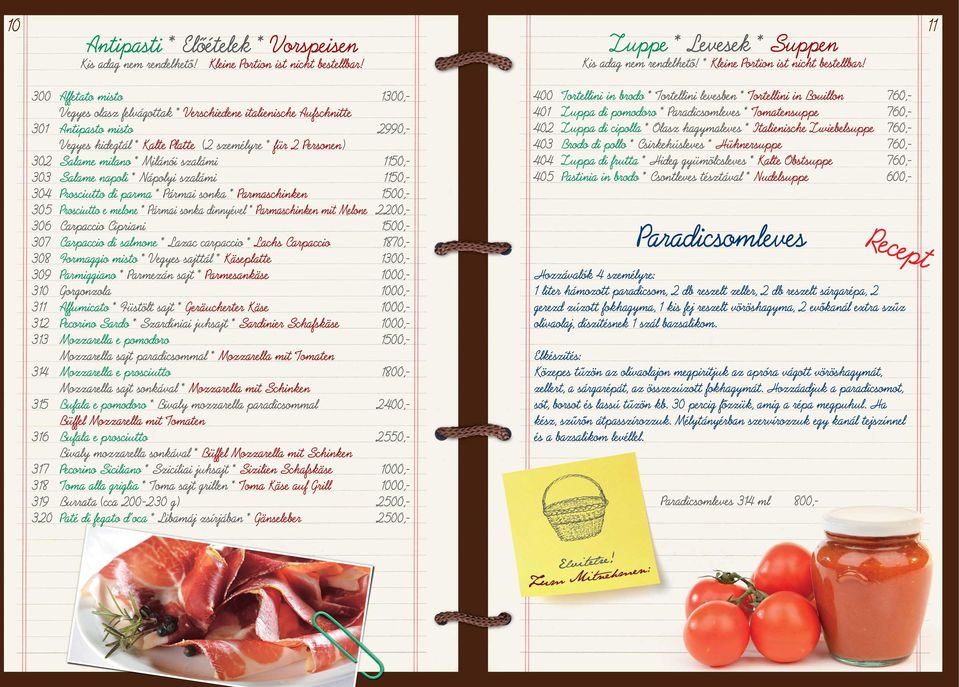 10
Antipasti * Előételek * Vorspeisen
Kis adag nem rendelhető! Kleine Portion ist nicht bestellbar!
300 Affetato misto 1300,-
Vegyes olasz felvágottak * Verschiedene italienische Aufschnitte
301 Antipasto misto 2990,-
Vegyes hidegtál * Kalte Platte (2 személyre * für 2 Personen)
302 Salame milano * Milánói szalámi 1150,-
303 Salame napoli * Nápolyi szalámi 1150,-
304 Prosciutto di parma * Pármai sonka * Parmaschinken 1500,-
305 Prosciutto e melone * Pármai sonka dinnyével * Parmaschinken mit Melone 2200,-
306 Carpaccio Cipriani 1500,-
307 Carpaccio di salmone * Lazac carpaccio * Lachs Carpaccio 1870,-
308 Formaggio misto * Vegyes sajttál * Käseplatte 1300,-
309 Parmiggiano * Parmezán sajt * Parmesankäse 1000,-
310 Gorgonzola 1000,-
311 Affumicato * Füstölt sajt * Geräucherter Käse 1000,-
312 Pecorino Sardo * Szardíniai juhsajt * Sardinier Schafskäse 1000,-
313 Mozzarella e pomodoro 1500,-
Mozzarella sajt paradicsommal * Mozzarella mit Tomaten
314 Mozzarella e prosciutto 1800,-
Mozzarella sajt sonkával * Mozzarella mit Schinken
315 Bufala e pomodoro * Bivaly mozzarella paradicsommal 2400,-
Büffel Mozzarella mit Tomaten
316 Bufala e prosciutto 2550,-
Bivaly mozzarella sonkával * Büffel Mozzarella mit Schinken
317 Pecorino Siciliano * Szicíliai juhsajt * Sizilien Schafskäse 1000,-
318 Toma alla griglia * Toma sajt grillen * Toma Käse auf Grill 1000,-
319 Burrata (cca 200-230 g) 2500,-
320 Paté di fegato d'oca * Libamáj zsírjában * Gänseleber 2500,-
11
Zuppe * Levesek * Suppen
Kis adag nem rendelhető! * Kleine Portion ist nicht bestellbar!
400 Tortellini in brodo * Tortellini levesben * Tortellini in Bouillon 760,-
401 Zuppa di pomodoro * Paradicsomleves * Tomatensuppe 760,-
402 Zuppa di cipolla * Olasz hagymaleves * Italienische Zwiebelsuppe 760,-
403 Brodo di pollo * Csirkehúsleves * Hühnersuppe 760,-
404 Zuppa di frutta * Hideg gyümölcsleves * Kalte Obstsuppe 760,-
405 Pastinia in brodo * Csontleves tésztával * Nudelsuppe 600,-
Paradicsomleves
Recept
Hozzávalók 4 személyre:
1 liter hámozott paradicsom, 2 db reszelt zeller, 2 db reszelt sárgarépa, 2
gerezd zúzott fokhagyma, 1 kis fej reszelt vöröshagyma, 2 evőkanál extra szűz
olívaolaj, díszítésnek 1 szál bazsalikom.
Elkészítés:
Közepes tűzön az olívaolajon megpirítjuk az apróra vágott vöröshagymát,
zellert, a sárgarépát, az összezúzott fokhagymát. Hozzáadjuk a paradicsomot,
sót, borsot és lassú tűzön kb. 30 percig főzzük, amíg a répa megpuhul. Ha
kész, szűrőn átpasszírozzuk. Mélytányérban szervírozzuk egy kanál tejszínnel
és a bazsalikom levéllel.
Paradicsomleves 314 ml 800,-
Elvitelre!
Zum Mitnehmen: